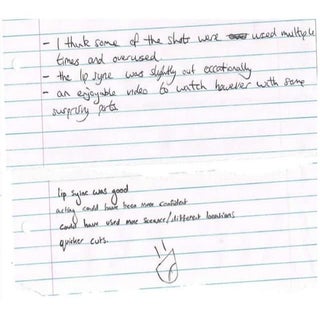 - I think some of the shots were used multiple
times and overused
- the lip sync was slightly out occationally
- an enjoyable video to watch however with some
surprising parts
lip sync was good
acting could have been more confident
could have used more scenes/different locations
quicker cuts.